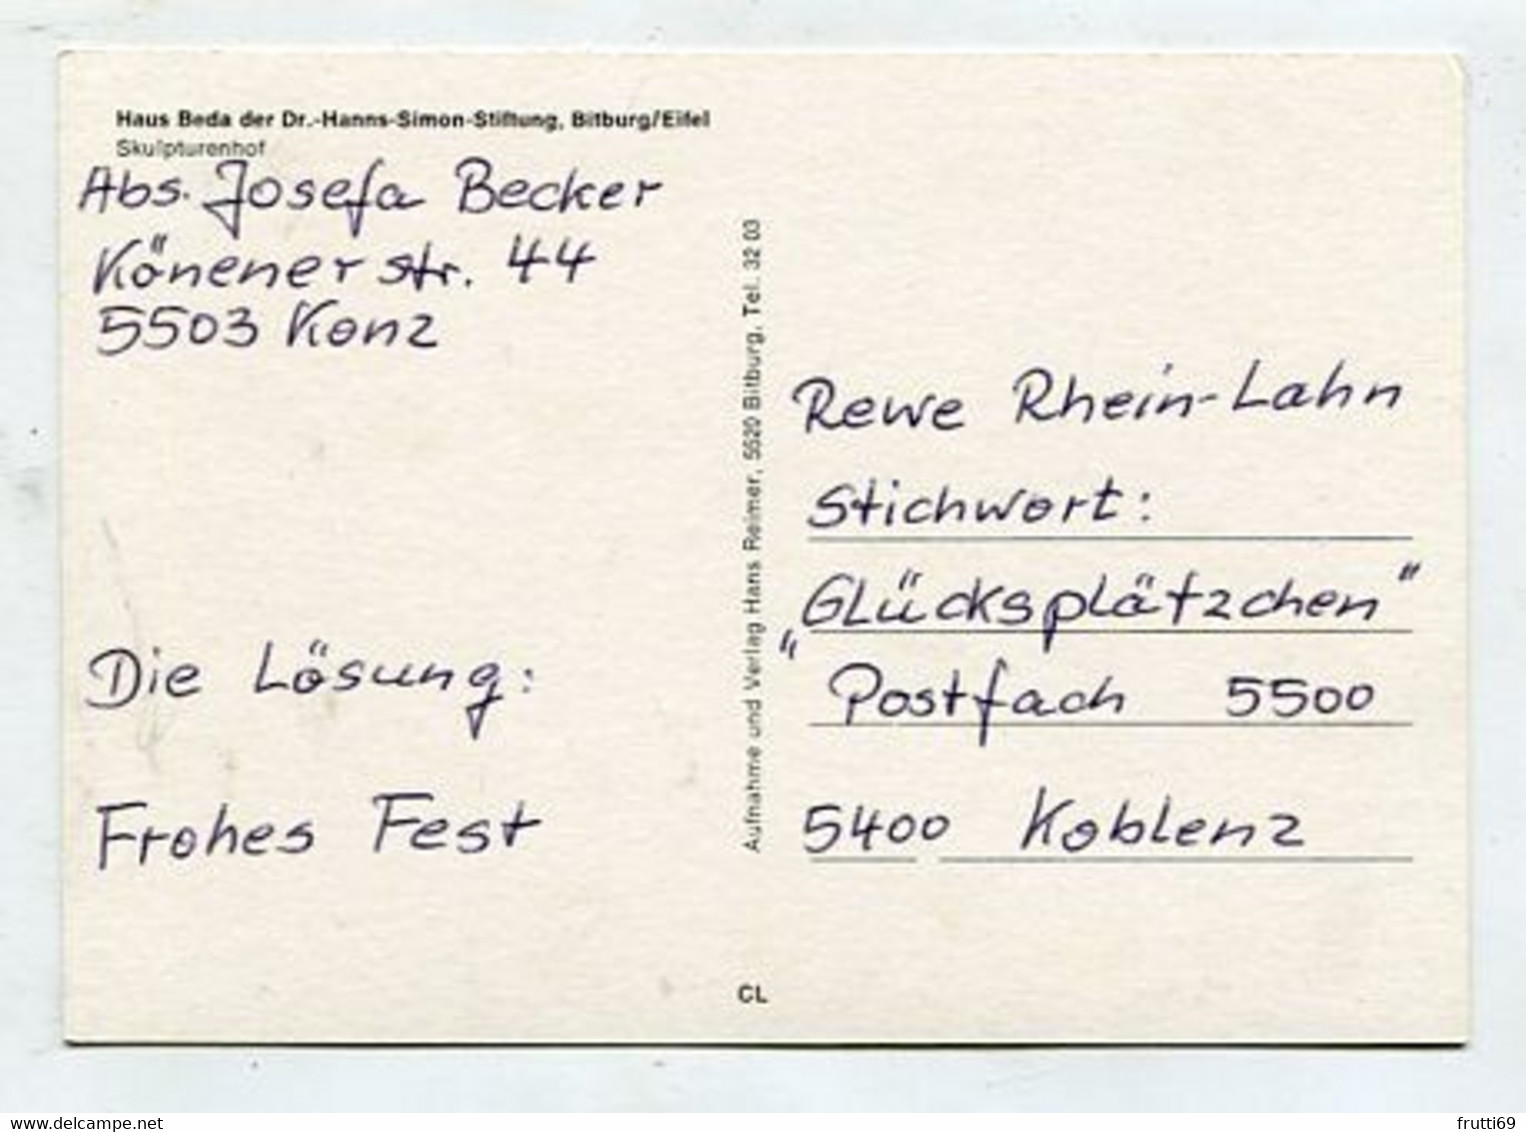 Haus Beda der Dr.-Hanns-Simon-Stiftung, Bitburg/Eifel
Skulpturenhof
Abs. Josefa Becker
Könener str. 44
5503 Konz
Die Lösung:
Frohes Fest
Aufnahme und Verlag Hans Reimer, 5520 Bitburg, Tel. 32 03
CL
Rewe Rhein-Lahn
Stichwort:
„Glücksplätzchen"
Postfach 5500
5400 Koblenz
www.delcampe.net
frutti69